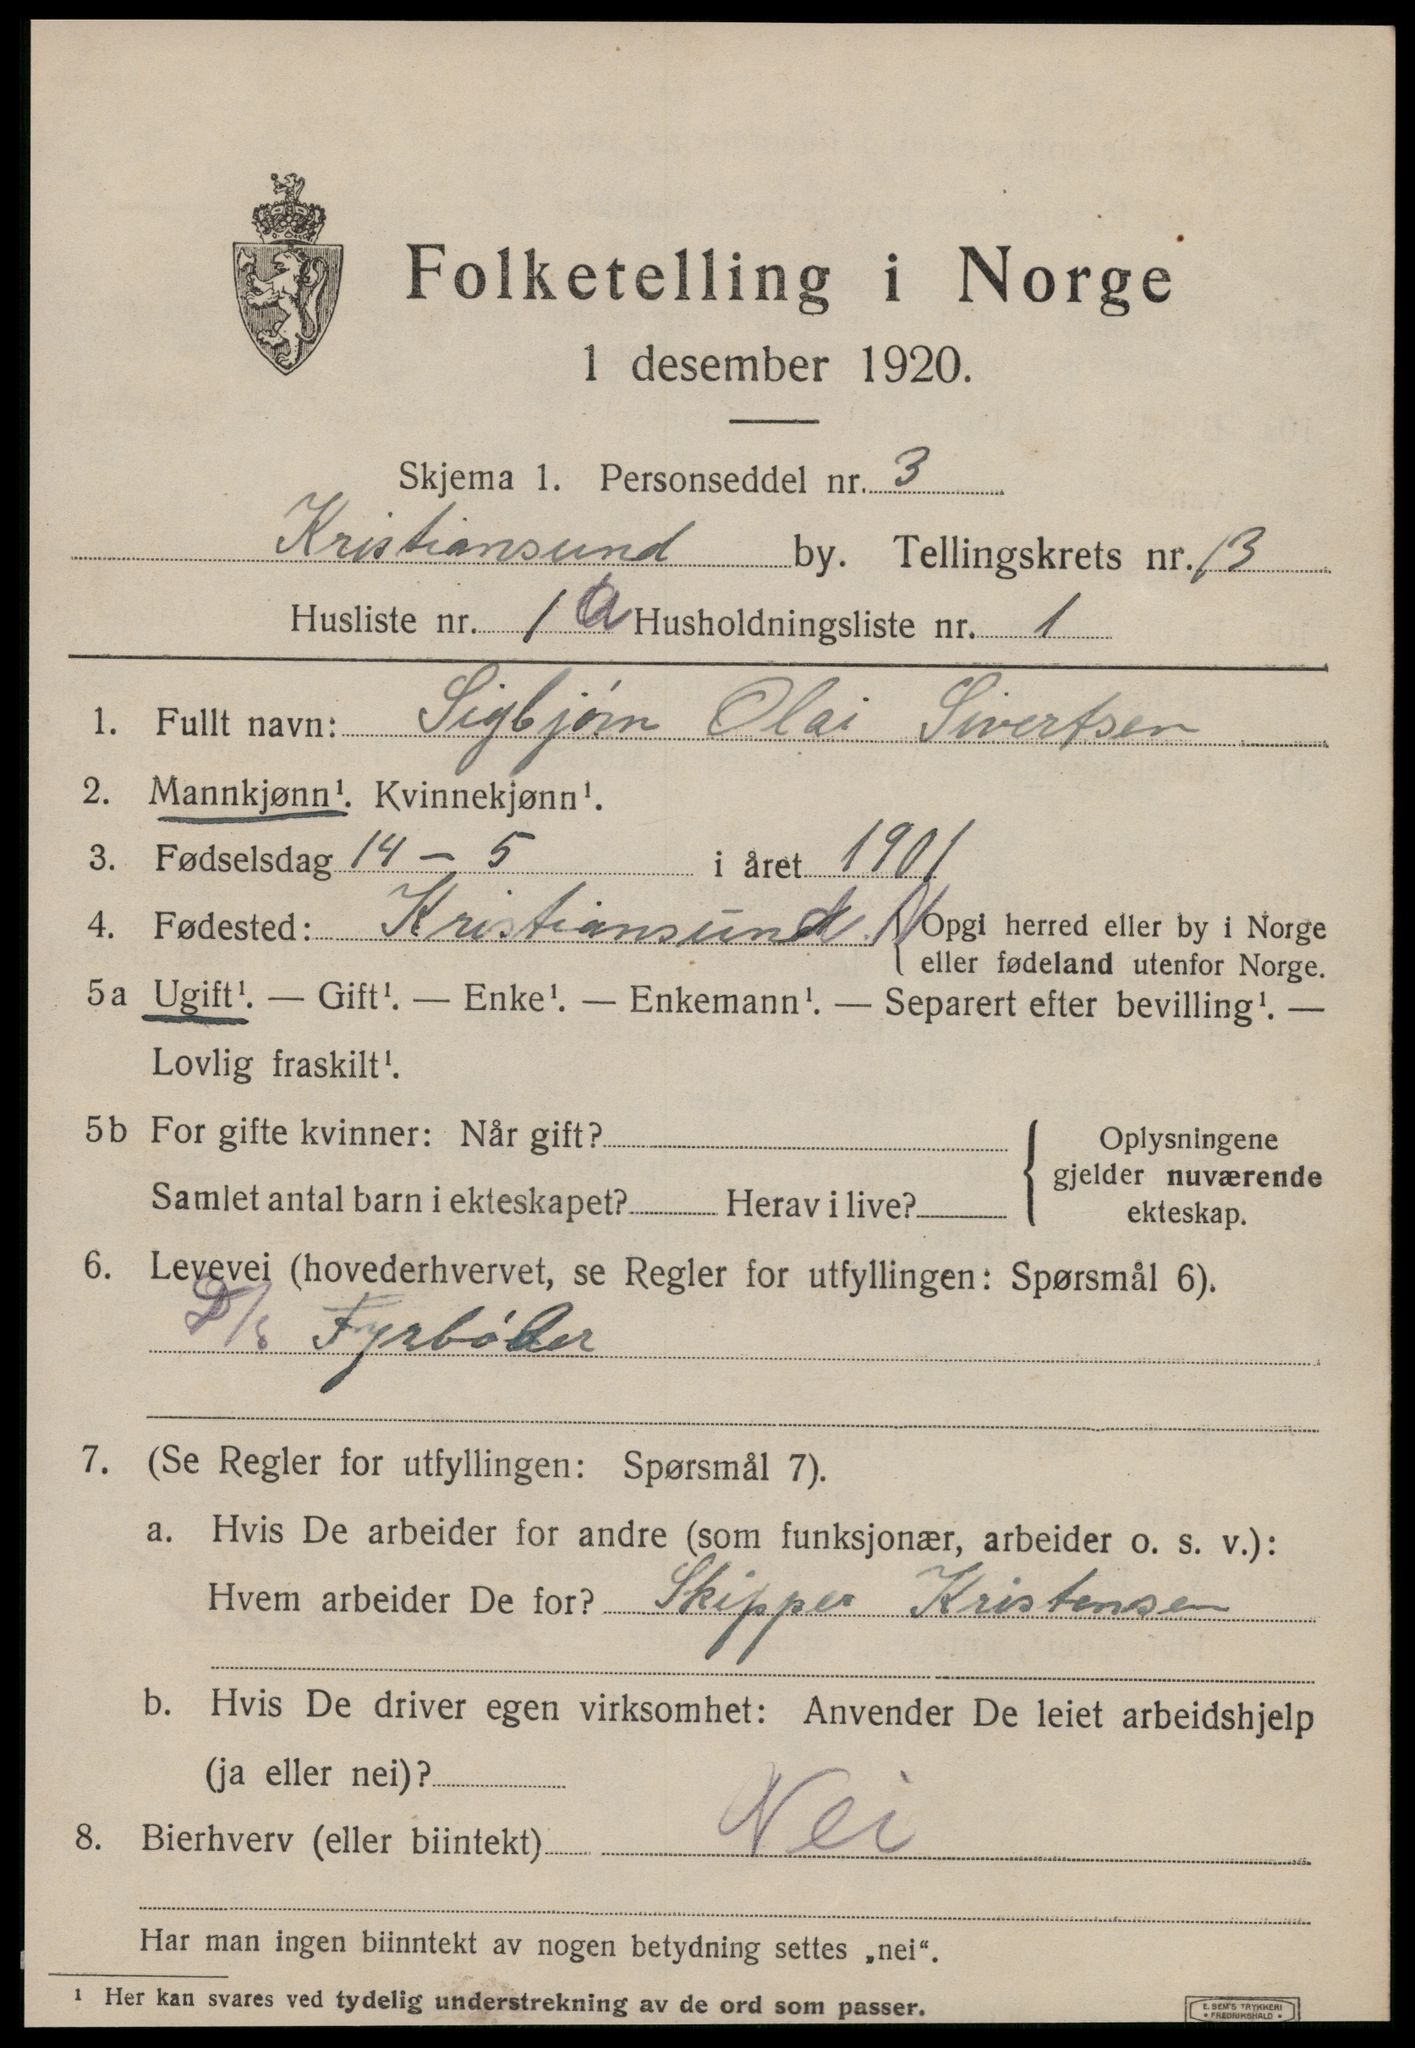 Folketelling i Norge
1 desember 1920.
Skjema 1. Personseddel nr. 3
Kristiansund by. Tellingskrets nr. 13
Husliste nr. 1 a Husholdningsliste nr. 1
1. Fullt navn: Sigbjørn Olai Sivertsen
2. Mannkjønn¹. Kvinnekjønn¹.
3. Fødselsdag 14 – 5 i året 1901
4. Fødested: Kristiansund N { Opgi herred eller by i Norge
eller fødeland utenfor Norge.
5a Ugift¹. — Gift¹. — Enke¹. — Enkemann¹. — Separert efter bevilling¹. —
Lovlig fraskilt¹.
5b For gifte kvinner: Når gift?
Samlet antal barn i ekteskapet? Herav i live?
{ Oplysningene
gjelder nuværende
ekteskap.
6. Levevei (hovederhvervet, se Regler for utfyllingen: Spørsmål 6).
D/s Fyrbøder
7. (Se Regler for utfyllingen: Spørsmål 7).
a. Hvis De arbeider for andre (som funksjonær, arbeider o. s. v.):
Hvem arbeider De for? Skipper Kristensen
b. Hvis De driver egen virksomhet: Anvender De leiet arbeidshjelp
(ja eller nei)?
8. Bierhverv (eller biintekt) Nei
Har man ingen biinntekt av nogen betydning settes „nei“.
¹ Her kan svares ved tydelig understrekning av de ord som passer.
E. SEM'S TRYKKERI
• FREDRIKSHALD •